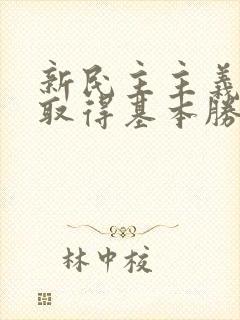 新民主主義
取得基本勝
林中校